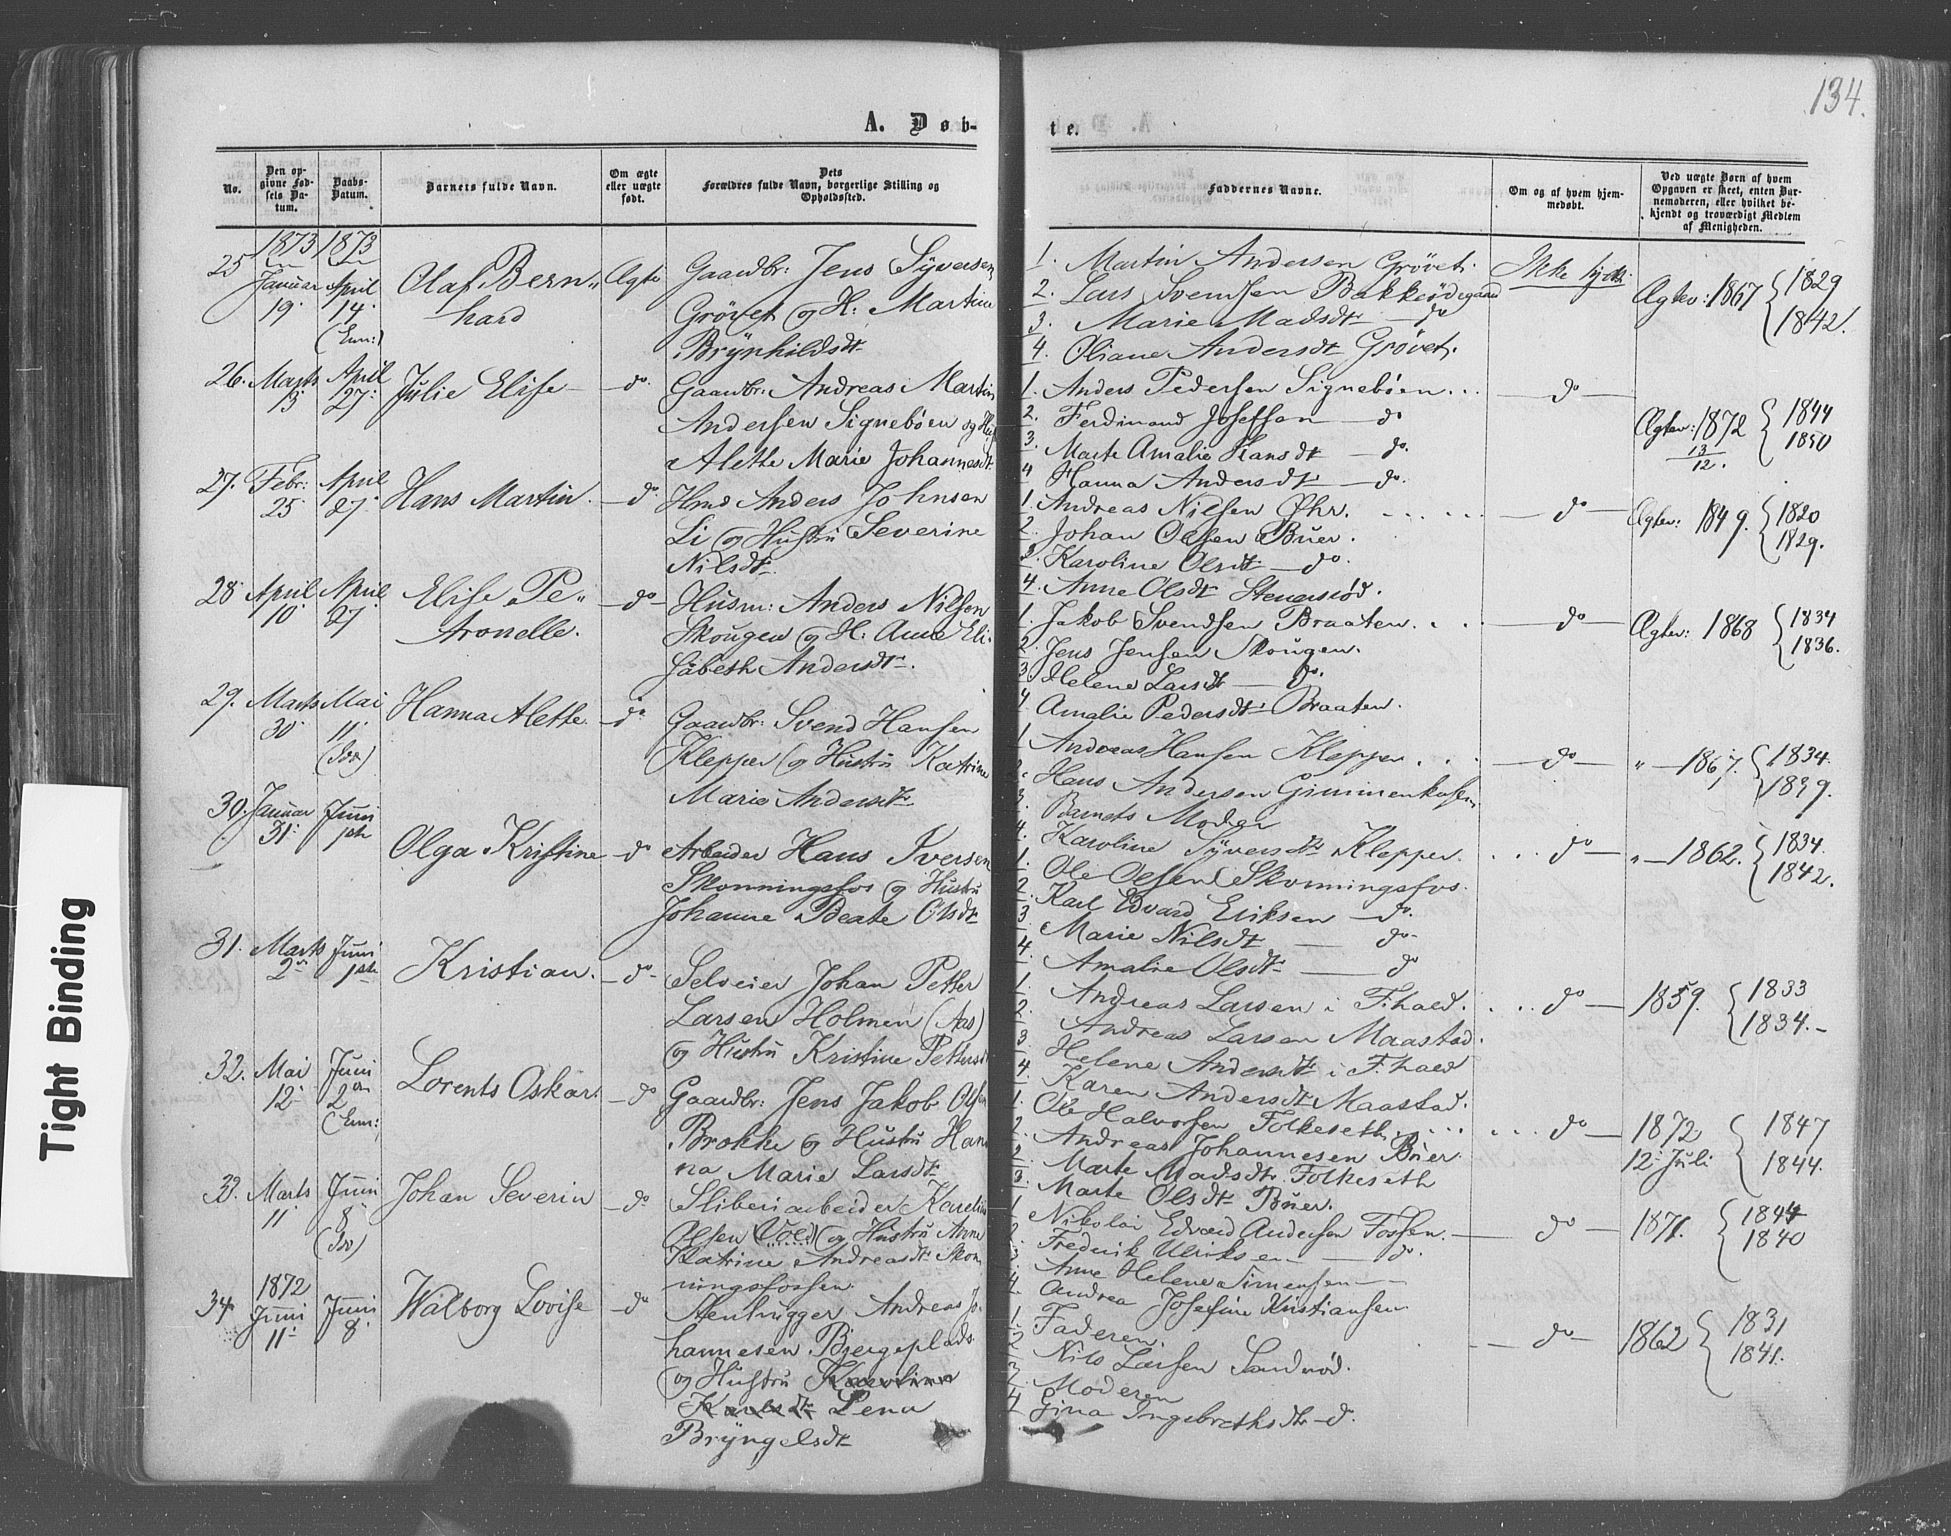 134.
A. Døb-
te.
No.
Den op-
givne Fød-
sels Da-
tum.
Daabs-
Datum.
Barnets fulde Navn.
Om ægte
eller uægte
født.
Dets
Forældres fulde Navn, borgerlige Stilling og
Opholdssted.
Faddernes Navne.
Om og af hvem hjem-
medøbt.
Ved uægte Børn af hvem
Opgaven er skeet, enten Bar-
nemoderen, eller hvilket be-
kjendt og troværdigt Medlem
af Menigheden.
25
1873
Januar
19.
1873
April
14.
Olaf Bern-
hard
Ægte
Gaardbr: Jens Syversen
Grøvet og H: Martine
Brynhildsdt
1. Martin Andersen Grøvet.
2. Lars Svendsen Bakkeødegaard
3. Marie Madsdt — do
4. Oliane Andersdt Grøvet.
Ikke hjdt.
Ægtev: 1867 { 1829
1842.
26.
Marts
13
April
27.
Julie Elise
do.
Gaardbr: Andreas Martin
Andersen Signebøen og Hu
Alette Marie Johannesdt
1. Anders Pedersen Signebøen . . .
2. Ferdinand Joseffsen — do
3. Marte Amalie Hansdt — do.
4 Hanna Andersdt — do.
— do —
Ægtev: 1872 { 1844
1850
13
12.
27.
Febr:
25
April
27.
Hans Martin.
do.
Hmd Anders Johnsen
Li og Hustru Severine
Nilsdt.
1. Andreas Nilsen Øhr.
2. Johan Olsen Buer.
3. Karoline Olsdt — do.
4. Anne Olsdt Stenersrød.
— do —
Ægtev: 1849. { 1820
1829.
28
April
10.
April
27
Elise Pe-
tronelle.
— do —
Husm: Anders Nilsen
Skougen og H: Anne Eli-
sabeth Andersdt.
1. Jakob Svendsen Braaten.
2. Jens Jensen Skougen.
3 Helene Larsdt — do.
4 Amalie Pedersdt Braaten.
— do —
Ægtev: 1868 { 1834
1836.
29.
Marts
30
Mai
11.
Hanna Alette.
— do
Gaardbr: Svend Hansen
Klepper og Hustru Katrine
Marie Andersdt.
1 Andreas Hansen Klepper . . .
2. Hans Andersen Gimmenkasen
3. Barnets Moder
4. Karoline Syversdt Klepper.
— do —
" — 1867. { 1834.
1839.
30.
Januar
31.
Juni
1ste
Olga Kristine
— do
Arbeider Hans Iversen
Skonningsfos og Hustru
Johanne Beate Olsdt
1. Ole Olsen Skonningsfos.
2. Karl Edvard Eriksen — do.
3 Marie Nilsdt — do.
4. Amalie Olsdt — do
. . . do —
" — 1862. { 1834.
1842.
31.
Marts
2
Juni
1ste
Kristian.
— do —
Selveier Johan Petter
Larsen Holmen (Aas)
og Hustru Kristine Pettersdt
1. Andreas Larsen i F.hald.
2. Andreas Larsen Maastad.
3 Helene Andersdt i F.hald
4. Karen Andersdt Maastad.
. . . do —
1859. { 1833
1834. —
32.
Mai
12
Juni
2den
Lorents Oskar.
— do
Gaardbr: Jens Jakob Olsen
Brokke og Hustru Han
na Marie Larsdt
1. Ole Halvorsen Folkeseth . . . .
2. Andreas Johannesen Buer.
2. Marte Madsdt Folkeseth
3. Marte Olsdt Buer.
. . . do —
1872
12 Juli
{ 1847
1844.
33.
Marts
11
Juni
8
Johan Severin
— do
Sliberiarbeider Karelius
Olsen Vold og Hustru Anne
Katrine Andreasdt Skon-
ningsfossen.
1 Nikolai Edvard Andersen Fossen.
2. Frederik Ulriksen — do.
3. Anne Helene Simensen —
4. Andrea Josefine Kristiansen
— do —
1871. { 1844
1840
34.
1872
Juni
11
Juni
8.
Walborg Lovise
— do
Stenhugger Andreas Jo-
hannesen Bjergeplads
og Hustru Karoline
Karlsdt Lena
Bryngelsdt
1. Faderen.
2 Nils Larsen Sandrød.
3 Moderen
4 Gina Ingebrethsdtr — do.
— do —
1862 { 1831
1841.
Tight Binding